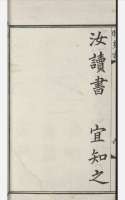 汝讀書 宜知之